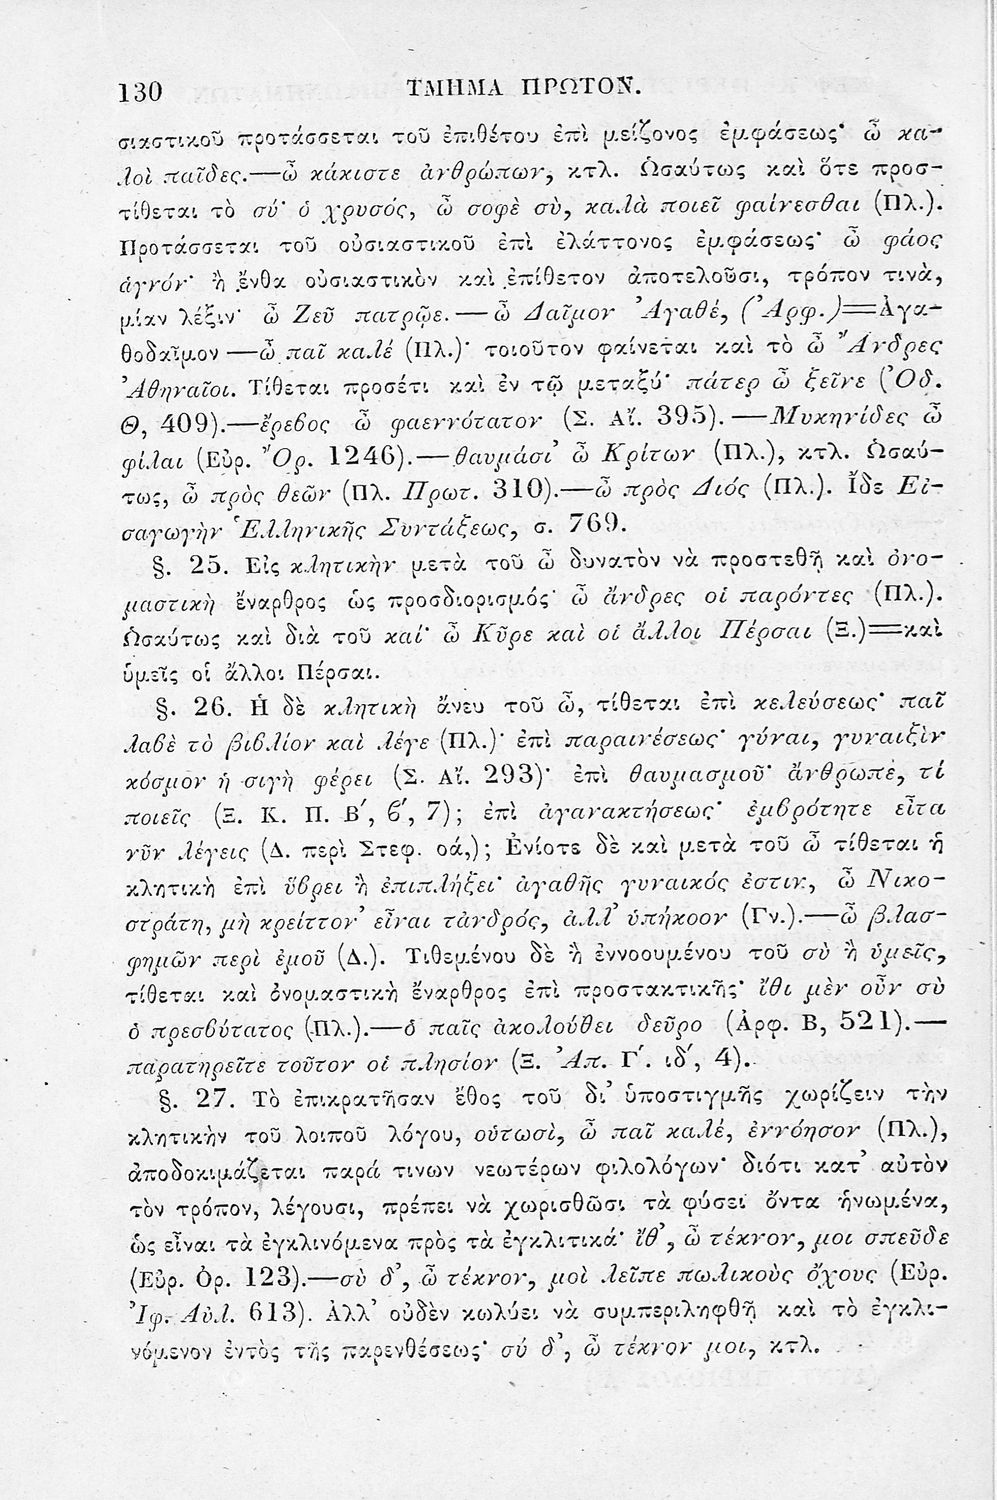 130
ΤΜΗΜΑ ΠΡΩΤΟΝ.
σιαστικοῦ προτάσσεται τοῦ ἐπιθέτου ἐπὶ μείζονος ἐμφάσεως· ὦ κα-
λοὶ παῖδες.—ὦ κάκιστε ἀνθρώπων, κτλ. Ὡσαύτως καὶ ὅτε προσ-
τίθεται τὸ σύ· ὁ χρυσός, ὦ σοφὲ σὺ, καλὰ ποιεῖ φαίνεσθαι (Πλ.).
Προτάσσεται τοῦ οὐσιαστικοῦ ἐπὶ ἐλάττονος ἐμφάσεως· ὦ φάος
ἁγνόν· ἢ ἔνθα οὐσιαστικὸν καὶ ἐπίθετον ἀποτελοῦσι, τρόπον τινὰ,
μίαν λέξιν· ὦ Ζεῦ πατρῷε.—ὦ Δαῖμον Ἀγαθέ, (Ἀρφ.)=Ἀγα-
θοδαῖμον—ὦ παῖ καλέ (Πλ.)· τοιοῦτον φαίνεται καὶ τὸ ὦ Ἄνδρες
Ἀθηναῖοι. Τίθεται προσέτι καὶ ἐν τῷ μεταξύ· πάτερ ὦ ξεῖνε (Ὀδ.
Θ, 409).—ἔρεβος ὦ φαεννότατον (Σ. Αἴ. 395).—Μυκηνίδες ὦ
φίλαι (Εὐρ. Ὀρ. 1246).—θαυμάσι᾿ ὦ Κρίτων (Πλ.), κτλ. Ὡσαύ-
τως, ὦ πρὸς θεῶν (Πλ. Πρωτ. 310).—ὦ πρὸς Διός (Πλ.). Ἴδε Εἰ-
σαγωγὴν Ἑλληνικῆς Συντάξεως, σ. 769.
§. 25. Εἰς κλητικὴν μετὰ τοῦ ὦ δυνατὸν νὰ προστεθῇ καὶ ὀνο-
μαστικὴ ἔναρθρος ὡς προσδιορισμός· ὦ ἄνδρες οἱ παρόντες (Πλ.).
Ὡσαύτως καὶ διὰ τοῦ καί· ὦ Κῦρε καὶ οἱ ἄλλοι Πέρσαι (Ξ.)=καὶ
ὑμεῖς οἱ ἄλλοι Πέρσαι.
§. 26. Ἡ δὲ κλητικὴ ἄνευ τοῦ ὦ, τίθεται ἐπὶ κελεύσεως· παῖ
λαβὲ τὸ βιβλίον καὶ λέγε (Πλ.)· ἐπὶ παραινέσεως· γύναι, γυναιξὶν
κόσμον ἡ σιγὴ φέρει (Σ. Αἴ. 293)· ἐπὶ θαυμασμοῦ· ἄνθρωπε, τί
ποιεῖς (Ξ. Κ. Π. Β΄, β΄, 7); ἐπὶ ἀγανακτήσεως· ἐμβρότητε εἶτα
νῦν λέγεις (Δ. περὶ Στεφ. οά,); Ἐνίοτε δὲ καὶ μετὰ τοῦ ὦ τίθεται ἡ
κλητικὴ ἐπὶ ὕβρει ἢ ἐπιπλήξει· ἀγαθῆς γυναικός ἐστιν, ὦ Νικο-
στράτη, μὴ κρείττον᾿ εἶναι τἀνδρός, ἀλλ᾿ ὑπήκοον (Γν.).—ὦ βλασ-
φημῶν περὶ ἐμοῦ (Δ.). Τιθεμένου δὲ ἢ ἐννοουμένου τοῦ σὺ ἢ ὑμεῖς,
τίθεται καὶ ὀνομαστικὴ ἔναρθρος ἐπὶ προστακτικῆς· ἴθι μὲν οὖν σὺ
ὁ πρεσβύτατος (Πλ.).—ὁ παῖς ἀκολούθει δεῦρο (Ἀρφ. Β, 521).—
παρατηρεῖτε τοῦτον οἱ πλησίον (Ξ. Ἀπ. Γ΄. ιδ΄, 4).
§. 27. Τὸ ἐπικρατῆσαν ἔθος τοῦ δι᾿ ὑποστιγμῆς χωρίζειν τὴν
κλητικὴν τοῦ λοιποῦ λόγου, οὑτωσὶ, ὦ παῖ καλέ, ἐννόησον (Πλ.),
ἀποδοκιμάζεται παρά τινων νεωτέρων φιλολόγων· διότι κατ᾿ αὐτὸν
τὸν τρόπον, λέγουσι, πρέπει νὰ χωρισθῶσι τὰ φύσει ὄντα ἡνωμένα,
ὡς εἶναι τὰ ἐγκλινόμενα πρὸς τὰ ἐγκλιτικά· ἴθ᾿, ὦ τέκνον, μοι σπεῦδε
(Εὐρ. Ὀρ. 123).—σὺ δ᾿, ὦ τέκνον, μοὶ λεῖπε πωλικοὺς ὄχους (Εὐρ.
Ἰφ. Αὐλ. 613). Ἀλλ᾿ οὐδὲν κωλύει νὰ συμπεριληφθῇ καὶ τὸ ἐγκλι-
νόμενον ἐντὸς τῆς παρενθέσεως· σύ δ᾿, ὦ τέκνον μοι, κτλ.